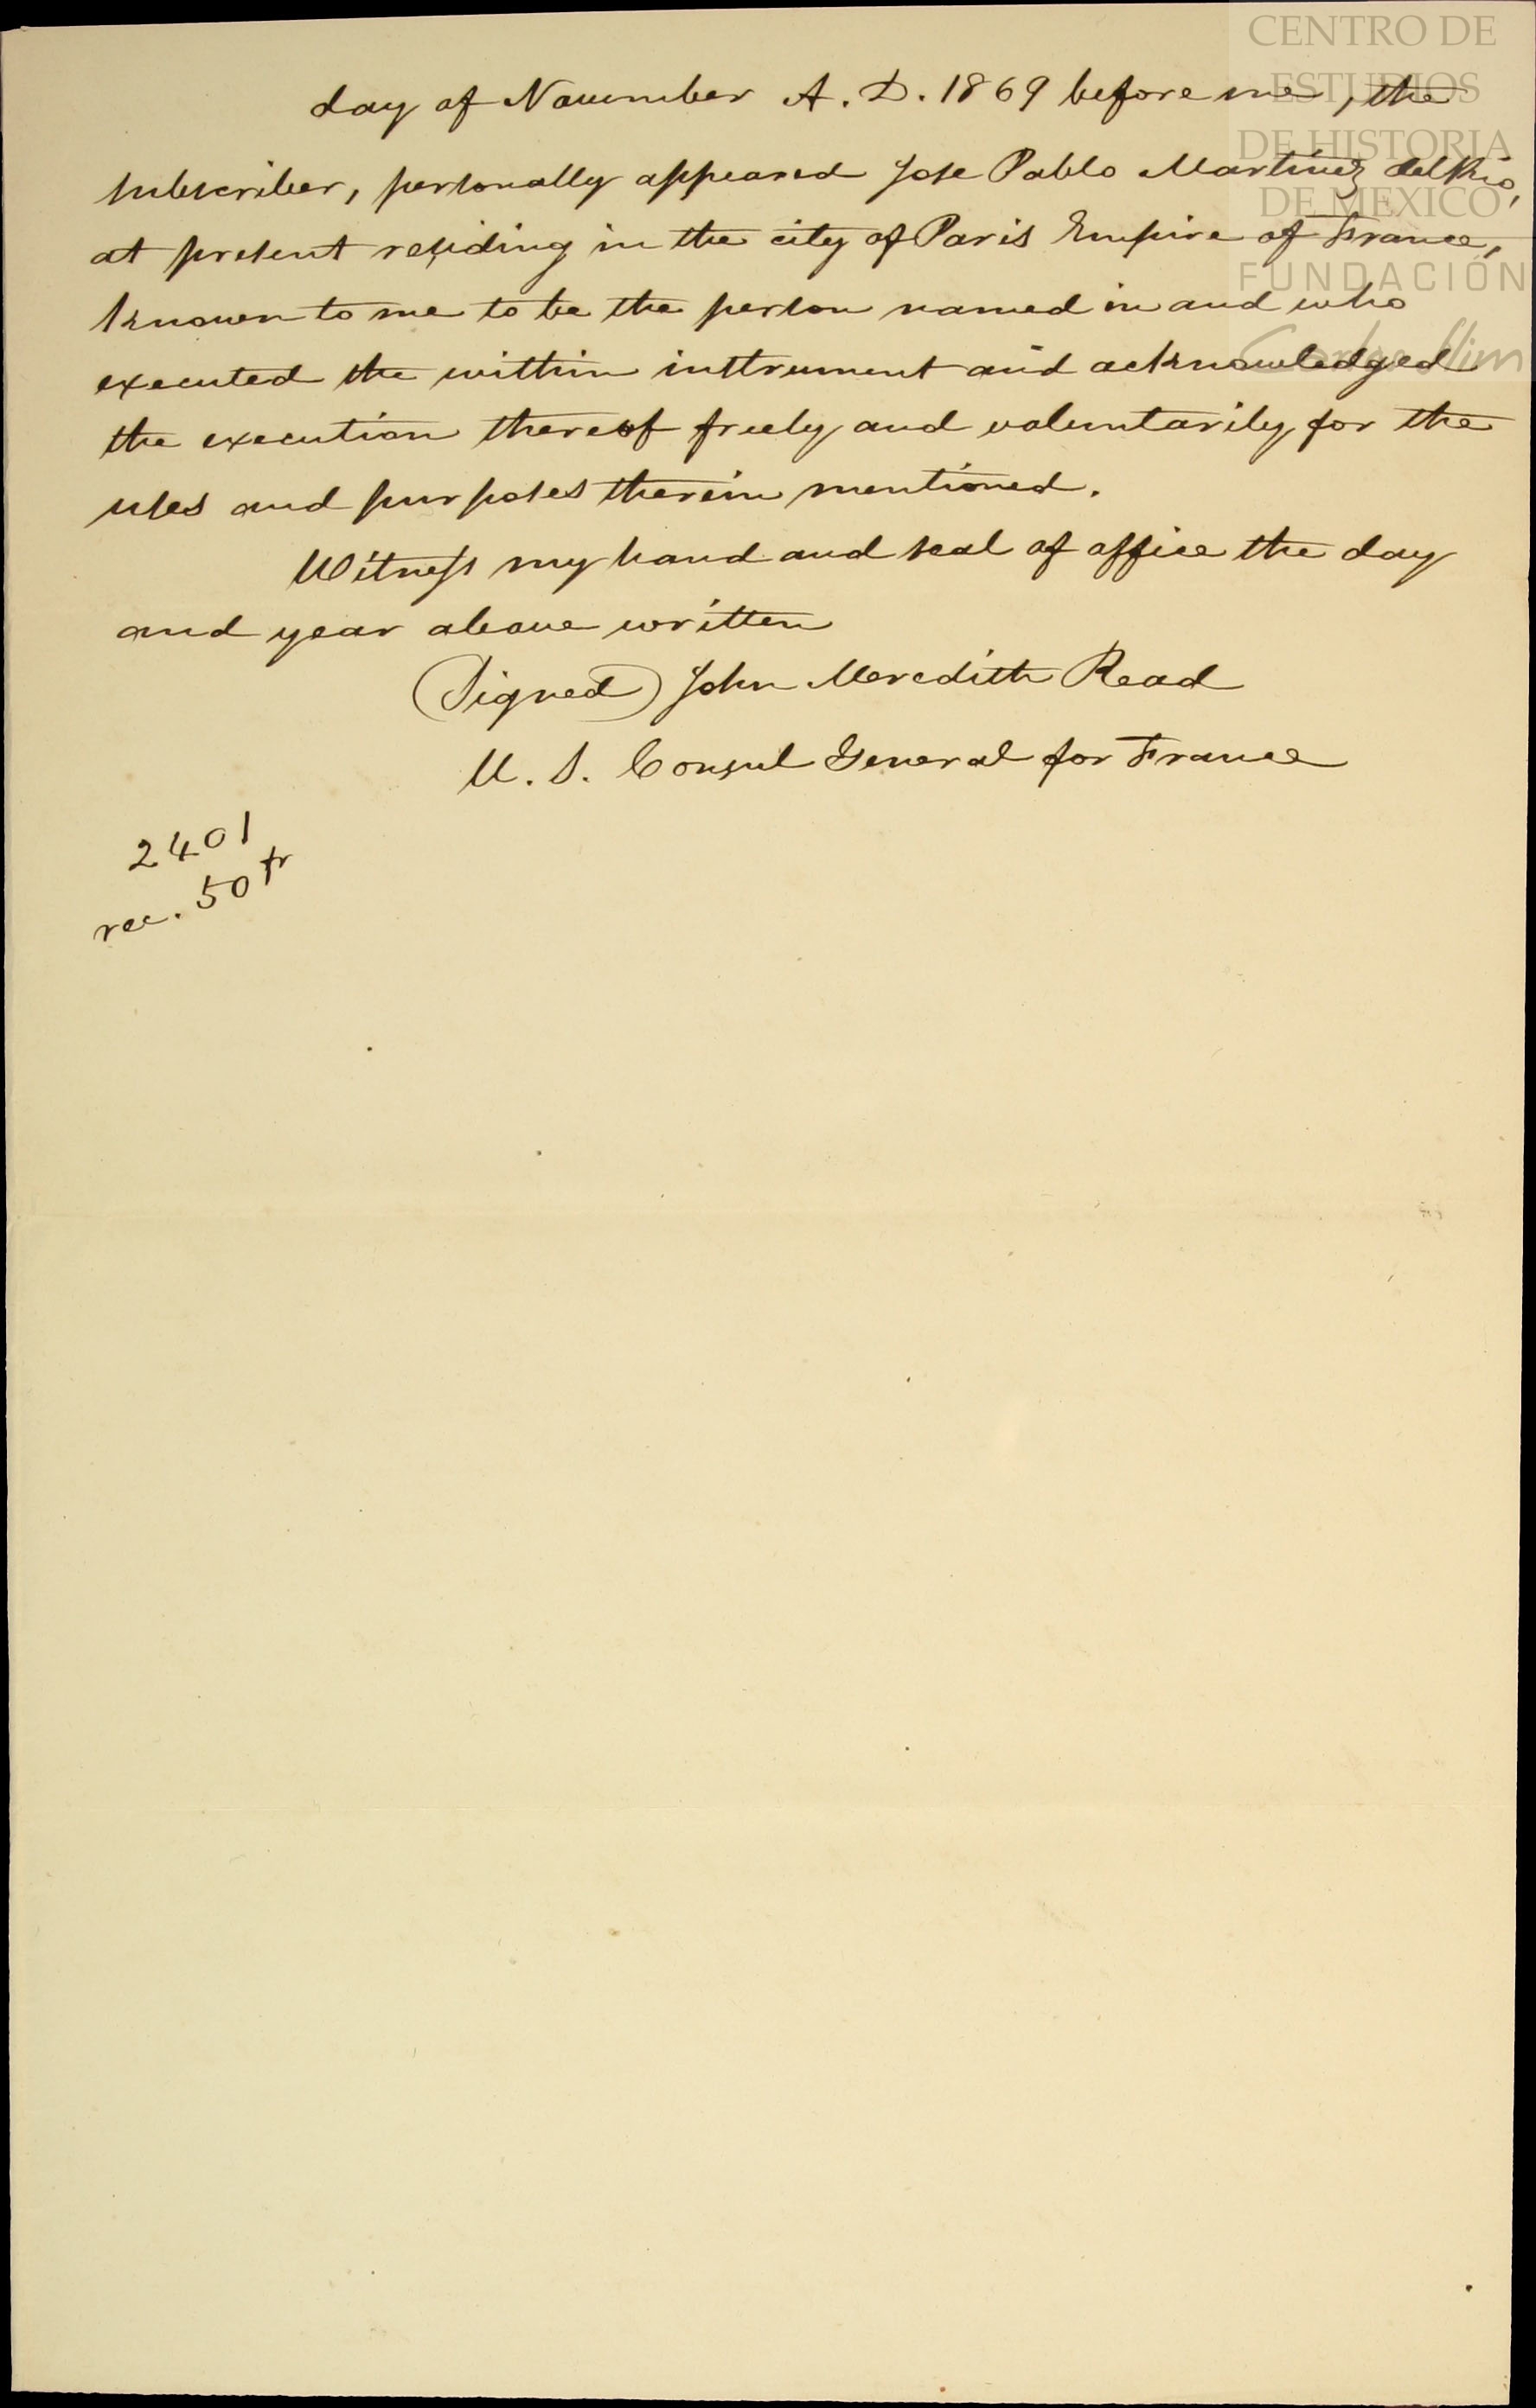 CENTRO DE
ESTUDIOS
DE HISTORIA
DE MEXICO
FUNDACIÓN
Carlos Slim
day of November A. D. 1869 before me, the
subscriber, personally appeared Jose Pablo Martinez del Rio,
at present residing in the city of Paris Empire of France,
known to me to be the person named in and who
executed the within instrument and acknowledged
the execution thereof freely and voluntarily for the
uses and purposes therein mentioned.
Witness my hand and seal of office the day
and year above written
(Signed) John Meredith Read
U. S. Consul General for France
2401
rec. 50 fr